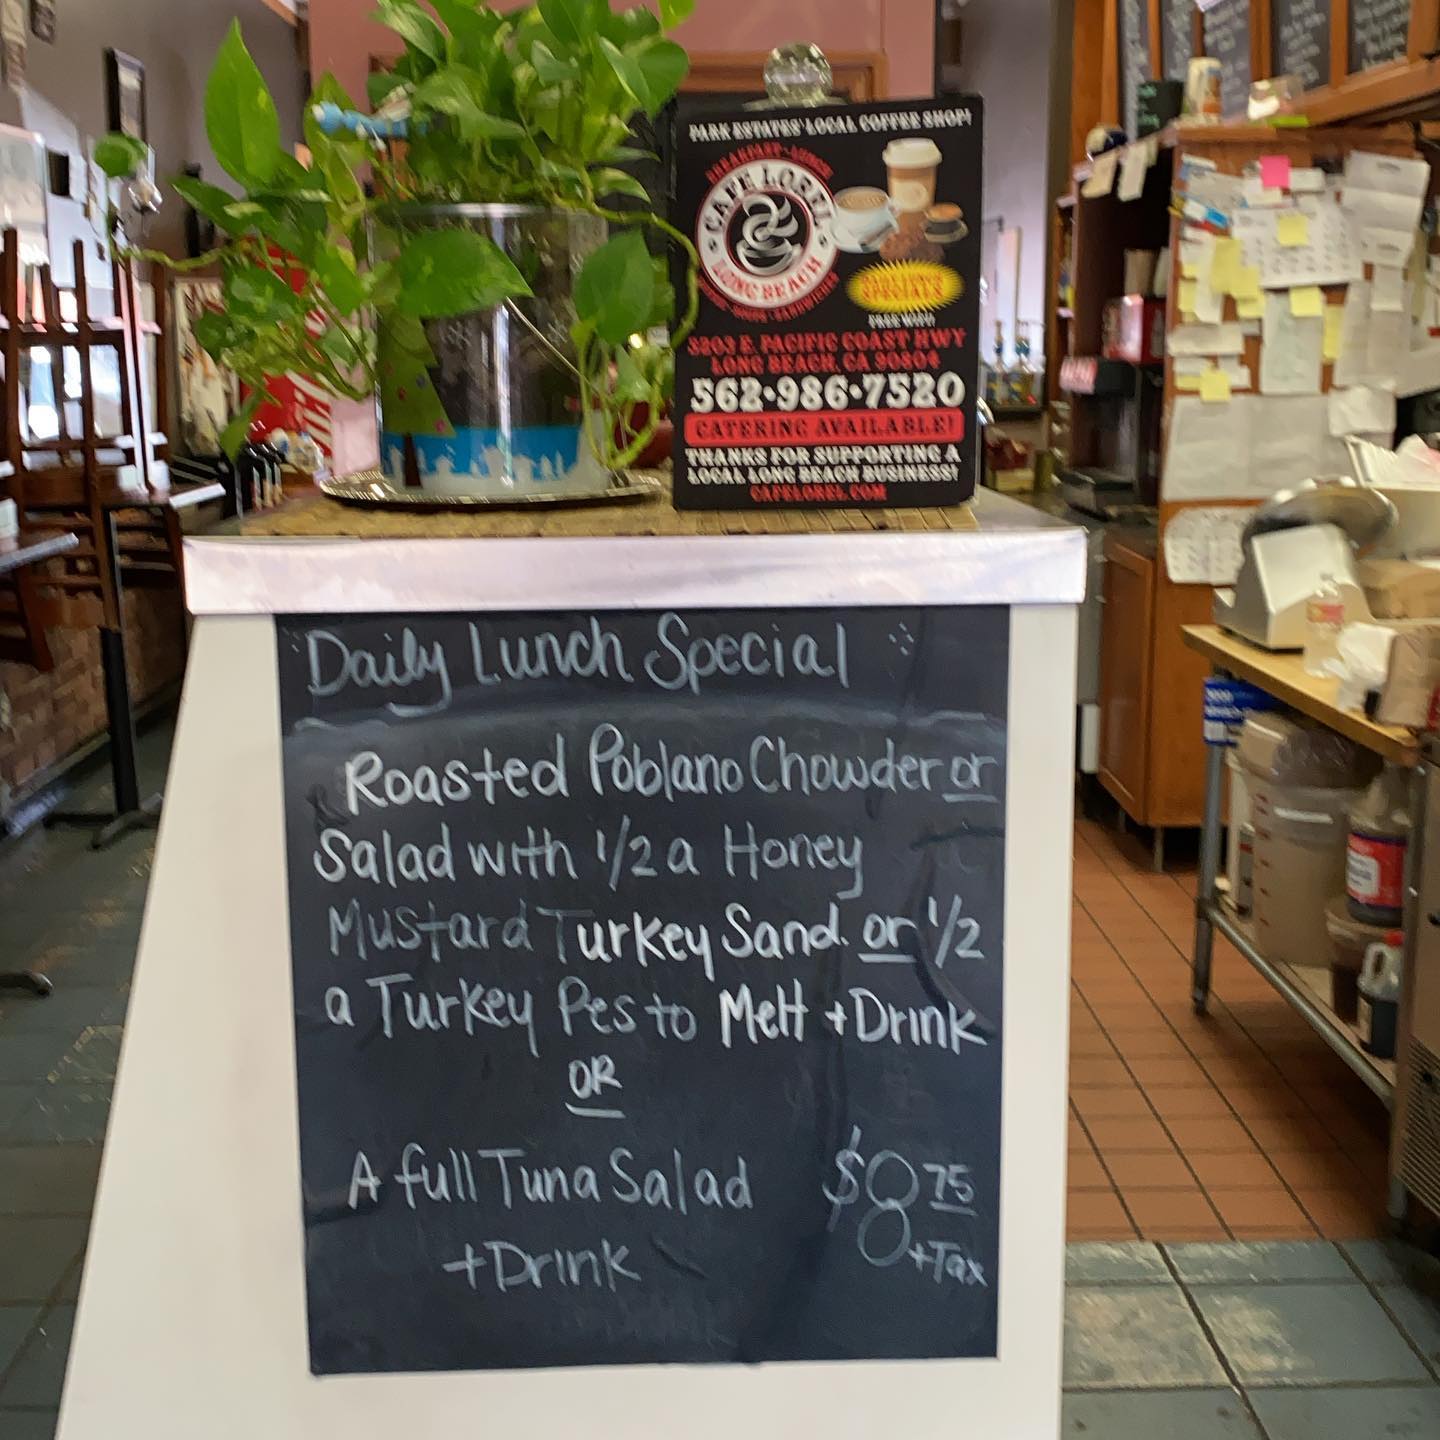 PARK ESTATES' LOCAL COFFEE SHOP!
BREAKFAST • LUNCH
CAFE LOREL
LONG BEACH
FREE WIFI!
5203 E. PACIFIC COAST HWY
LONG BEACH, CA 90804
562•986•7520
CATERING AVAILABLE!
THANKS FOR SUPPORTING A
LOCAL LONG BEACH BUSINESS!
CAFELOREL.COM
Daily Lunch Special
Roasted Poblano Chowder or
Salad with 1/2 a Honey
Mustard Turkey Sand. or 1/2
a Turkey Pesto Melt + Drink
OR
A full Tuna Salad $8 75
+ Drink + Tax